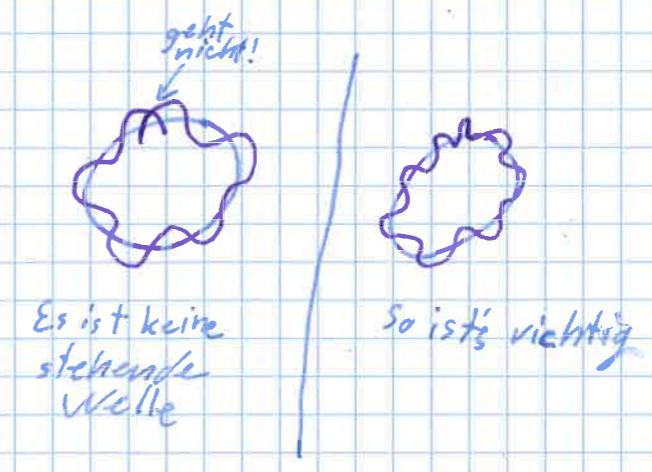 geht
nicht!
Es ist keine
stehende
Welle
So ist's richtig